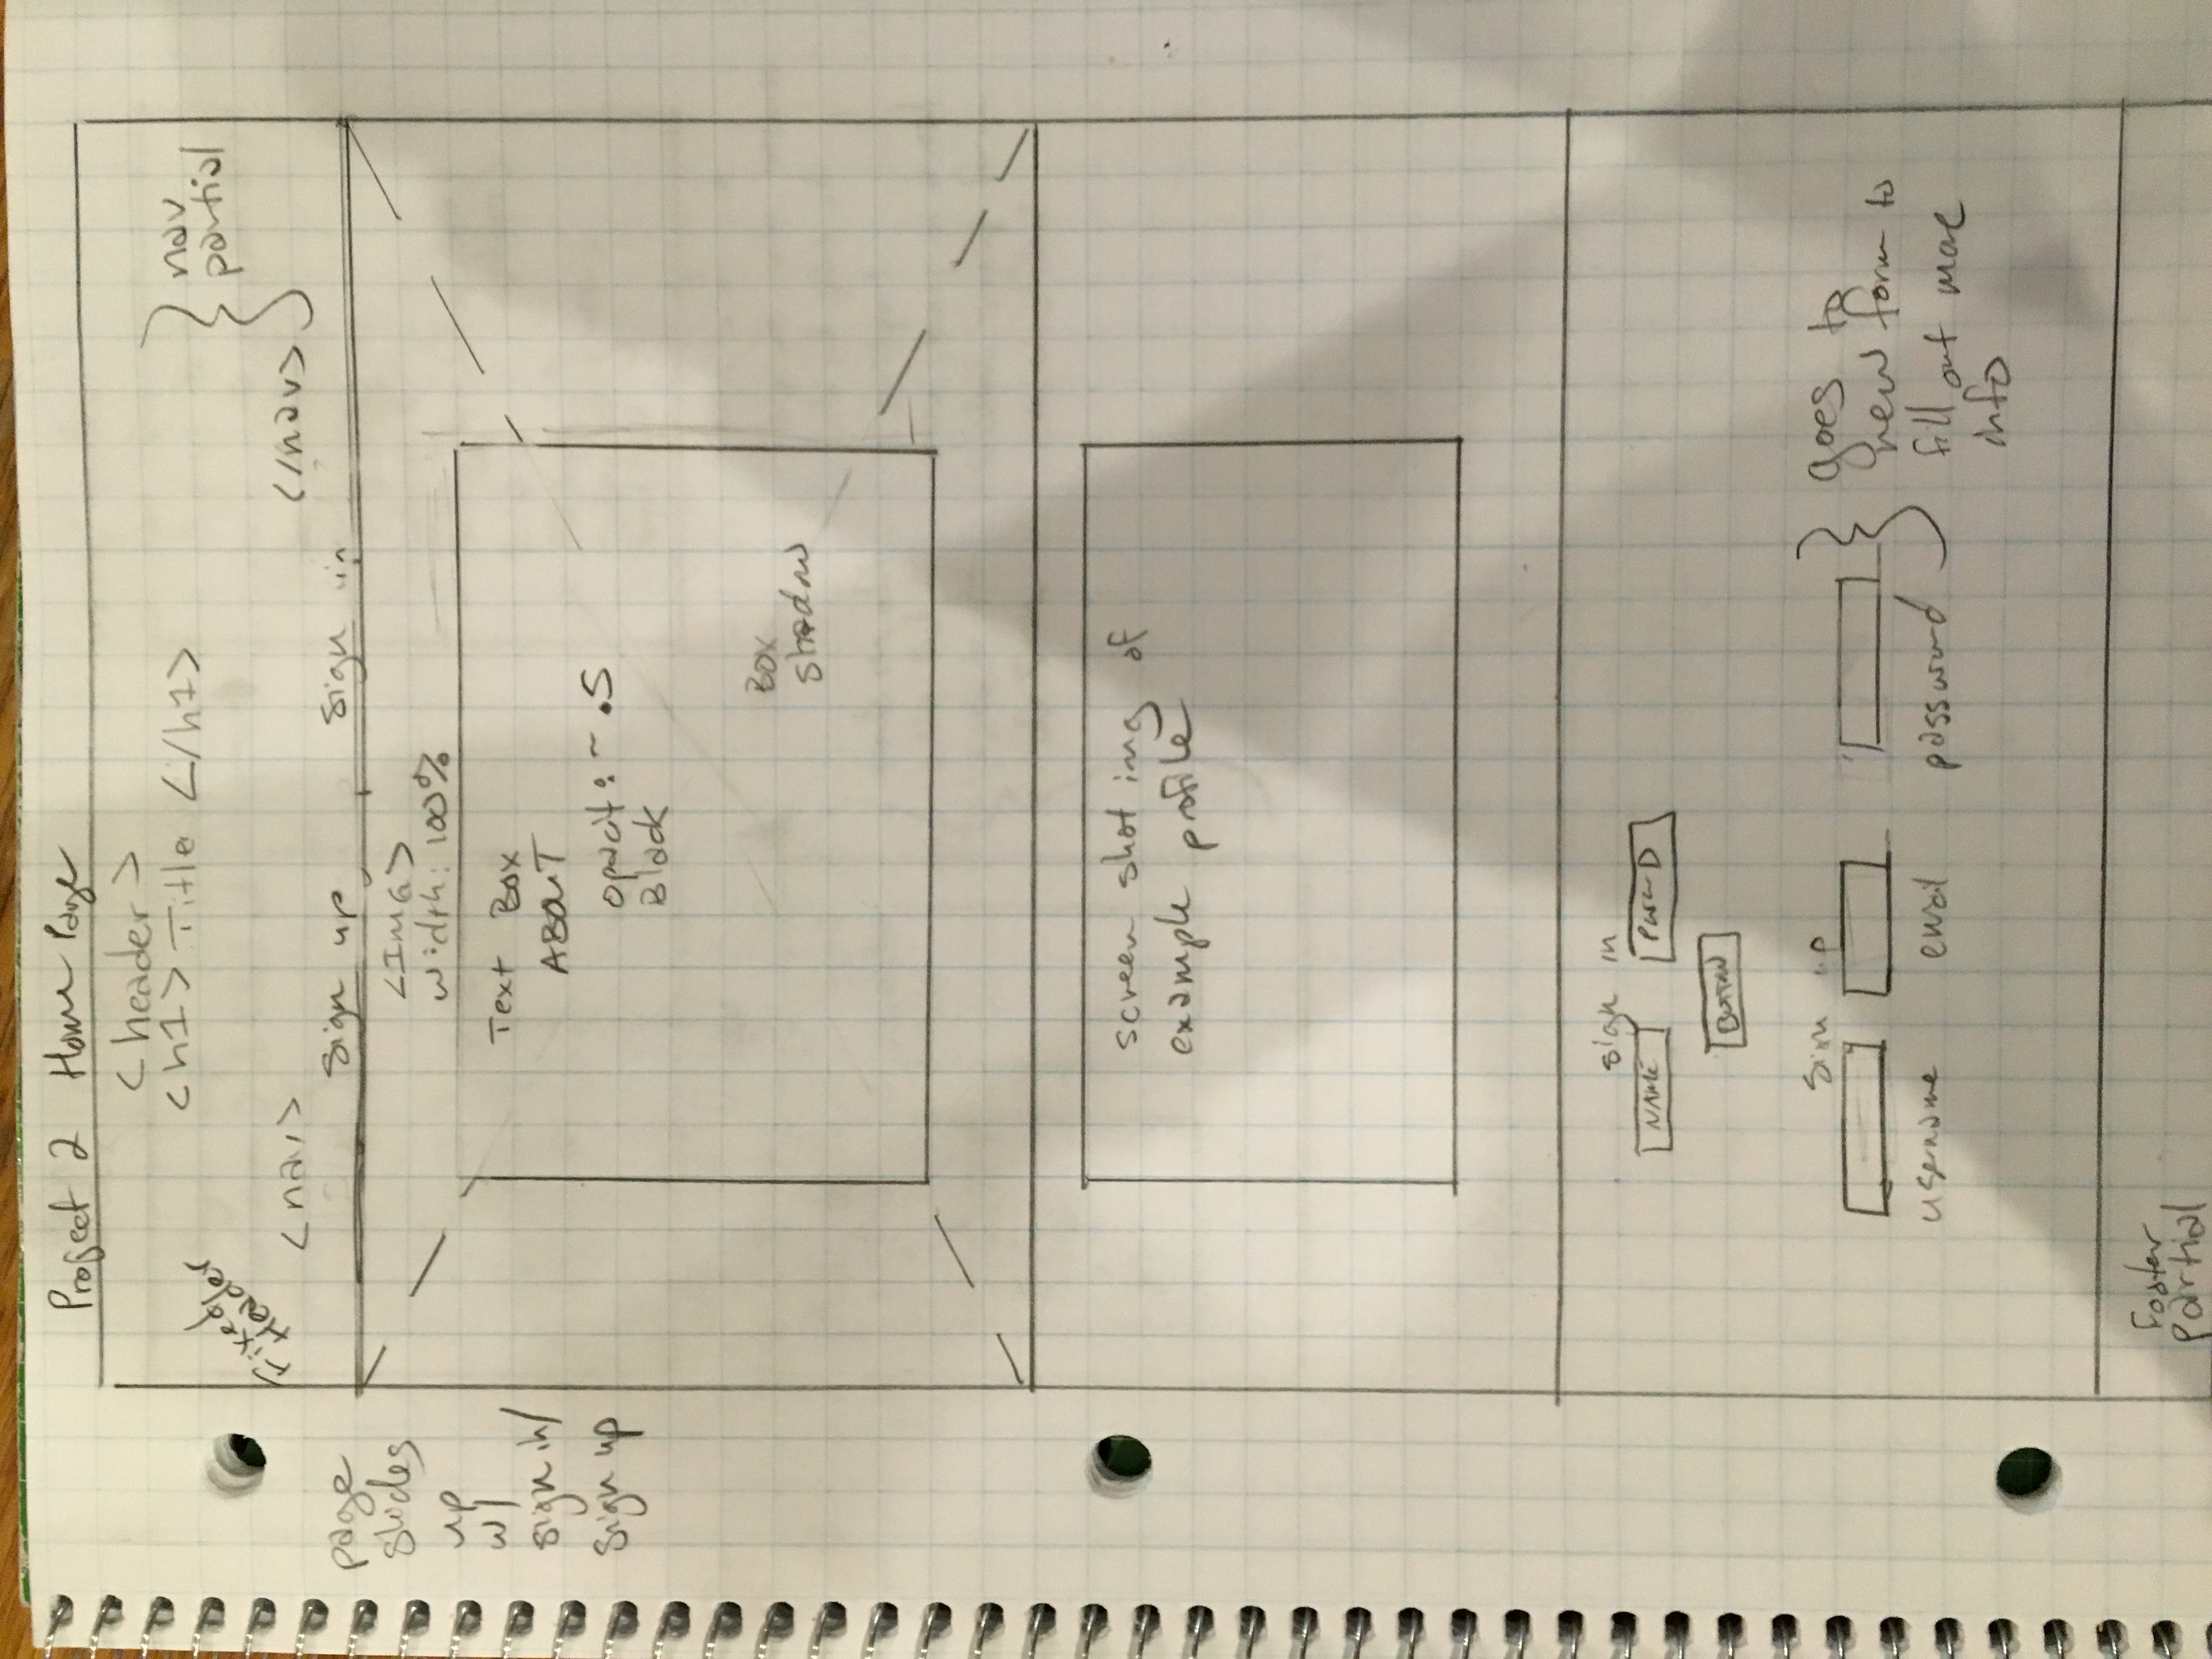 Project 2 Home Page
<header>
<h1> Title </h1>
nav
partial
Fixed
Header
<nav>
</nav>
sign up, sign in
page
slides
up
w/
sign in/
sign up
<IMG>
width: 100%
Text Box
ABOUT
opacit: ~ .5
Black
Box
shadow
screen shot img of
example profile
sign in
NAME
PWRD
BUTTON
sign up
username
email
password
goes to
new form to
fill out more
info
Footer
partial